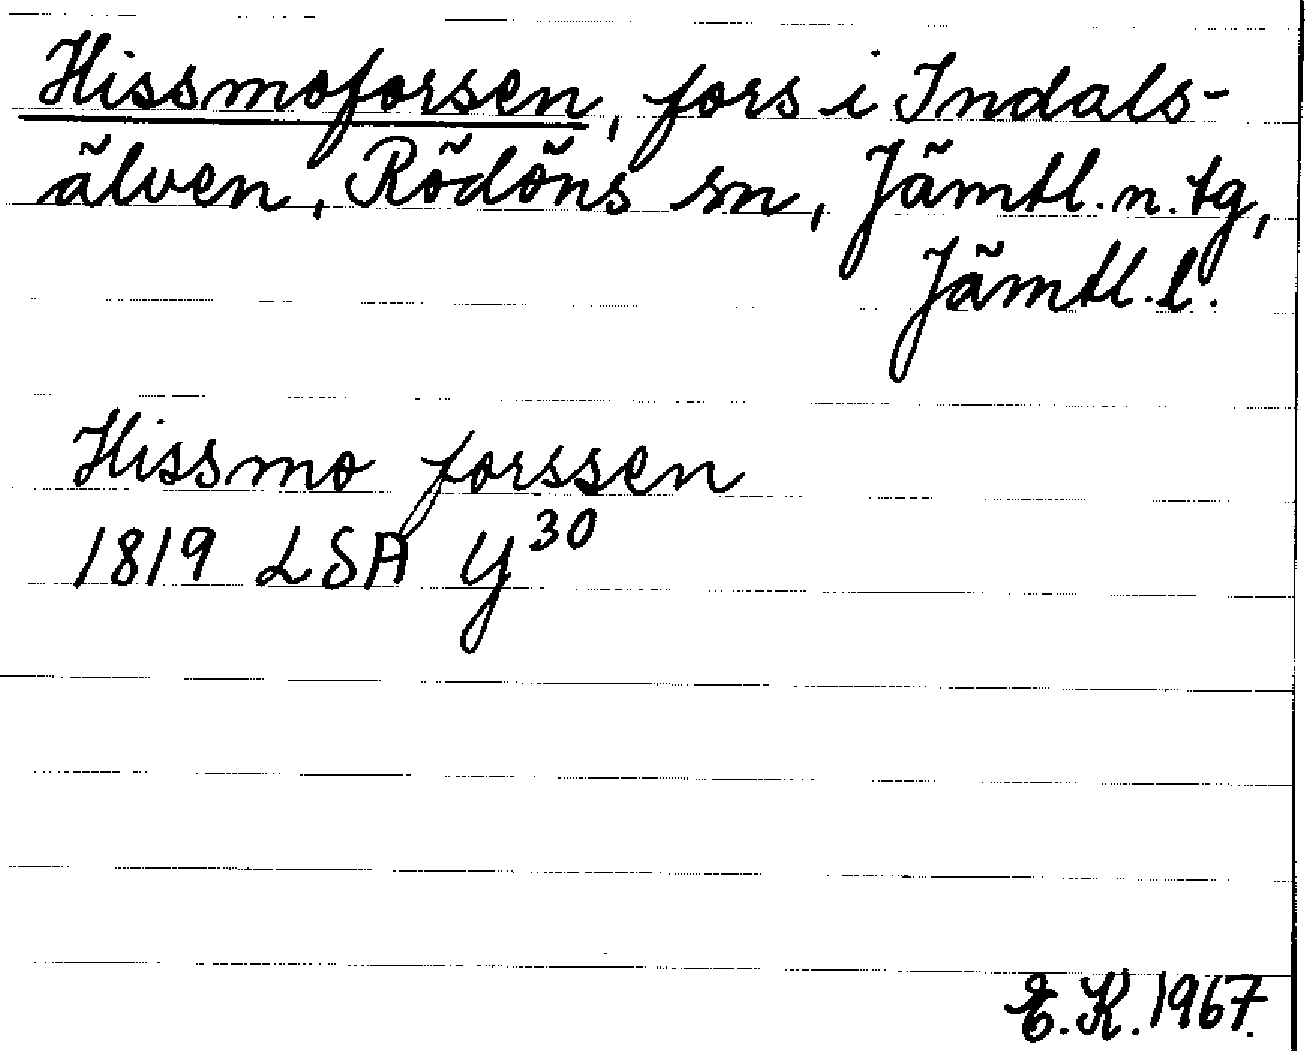 Hissmoforsen, fors i Indals-
älven, Rödöns sn, Jämtl. n. tg,
Jämtl. l.
Hissmo forssen
1819 LSA Y³⁰
E. K. 1967.